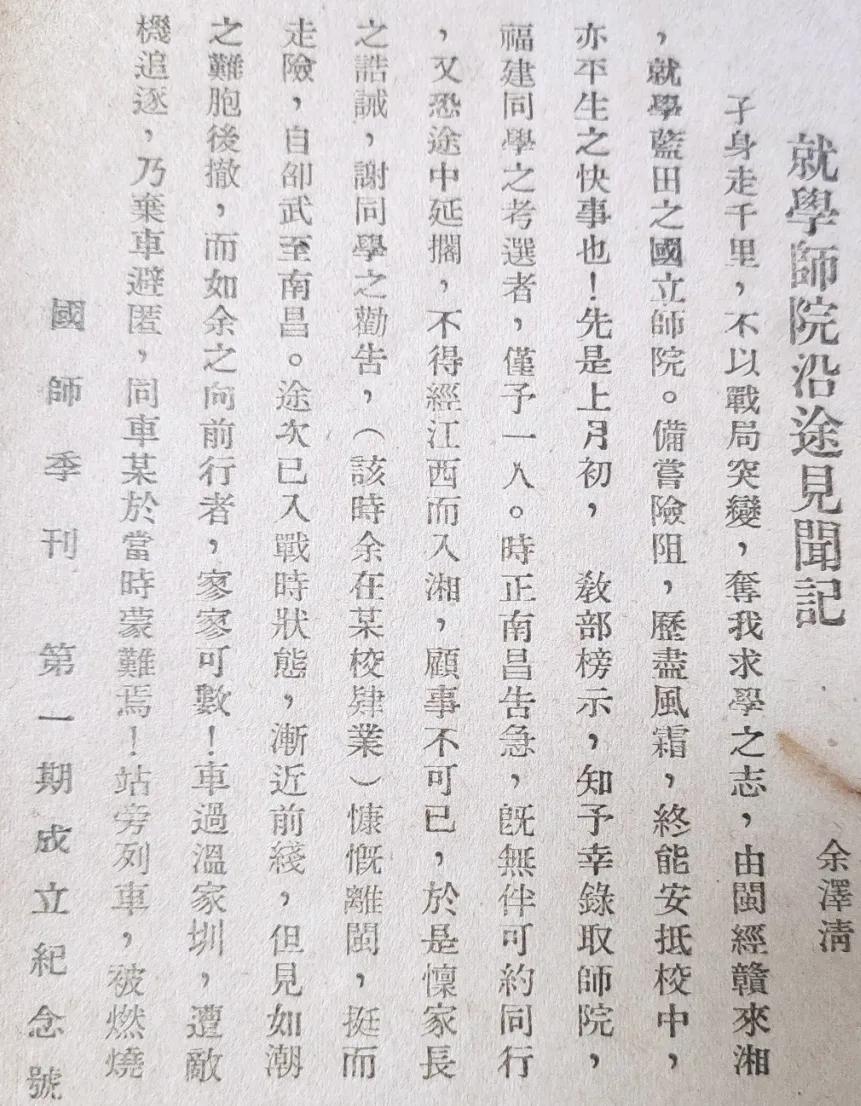 就學師院沿途見聞記
余澤淸
孑身走千里，不以戰局突變，奪我求學之志，由閩經贛來湘
，就學藍田之國立師院。備嘗險阻，歷盡風霜，終能安抵校中，
亦平生之快事也！先是上月初，　敎部榜示，知予幸錄取師院，
福建同學之考選者，僅予一人。時正南昌吿急，旣無伴可約同行
，又恐途中延擱，不得經江西而入湘，顧事不可已，於是懍家長
之誥誡，謝同學之勸吿，（該時余在某校肄業）慷慨離閩，挺而
走險，自卲武至南昌。途次已入戰時狀態，漸近前綫，但見如潮
之難胞後撤，而如余之向前行者，寥寥可數！車過溫家圳，遭敵
機追逐，乃棄車避匿，同車某於當時蒙難焉！站旁列車，被燃燒
國師季刊　第一期成立紀念號